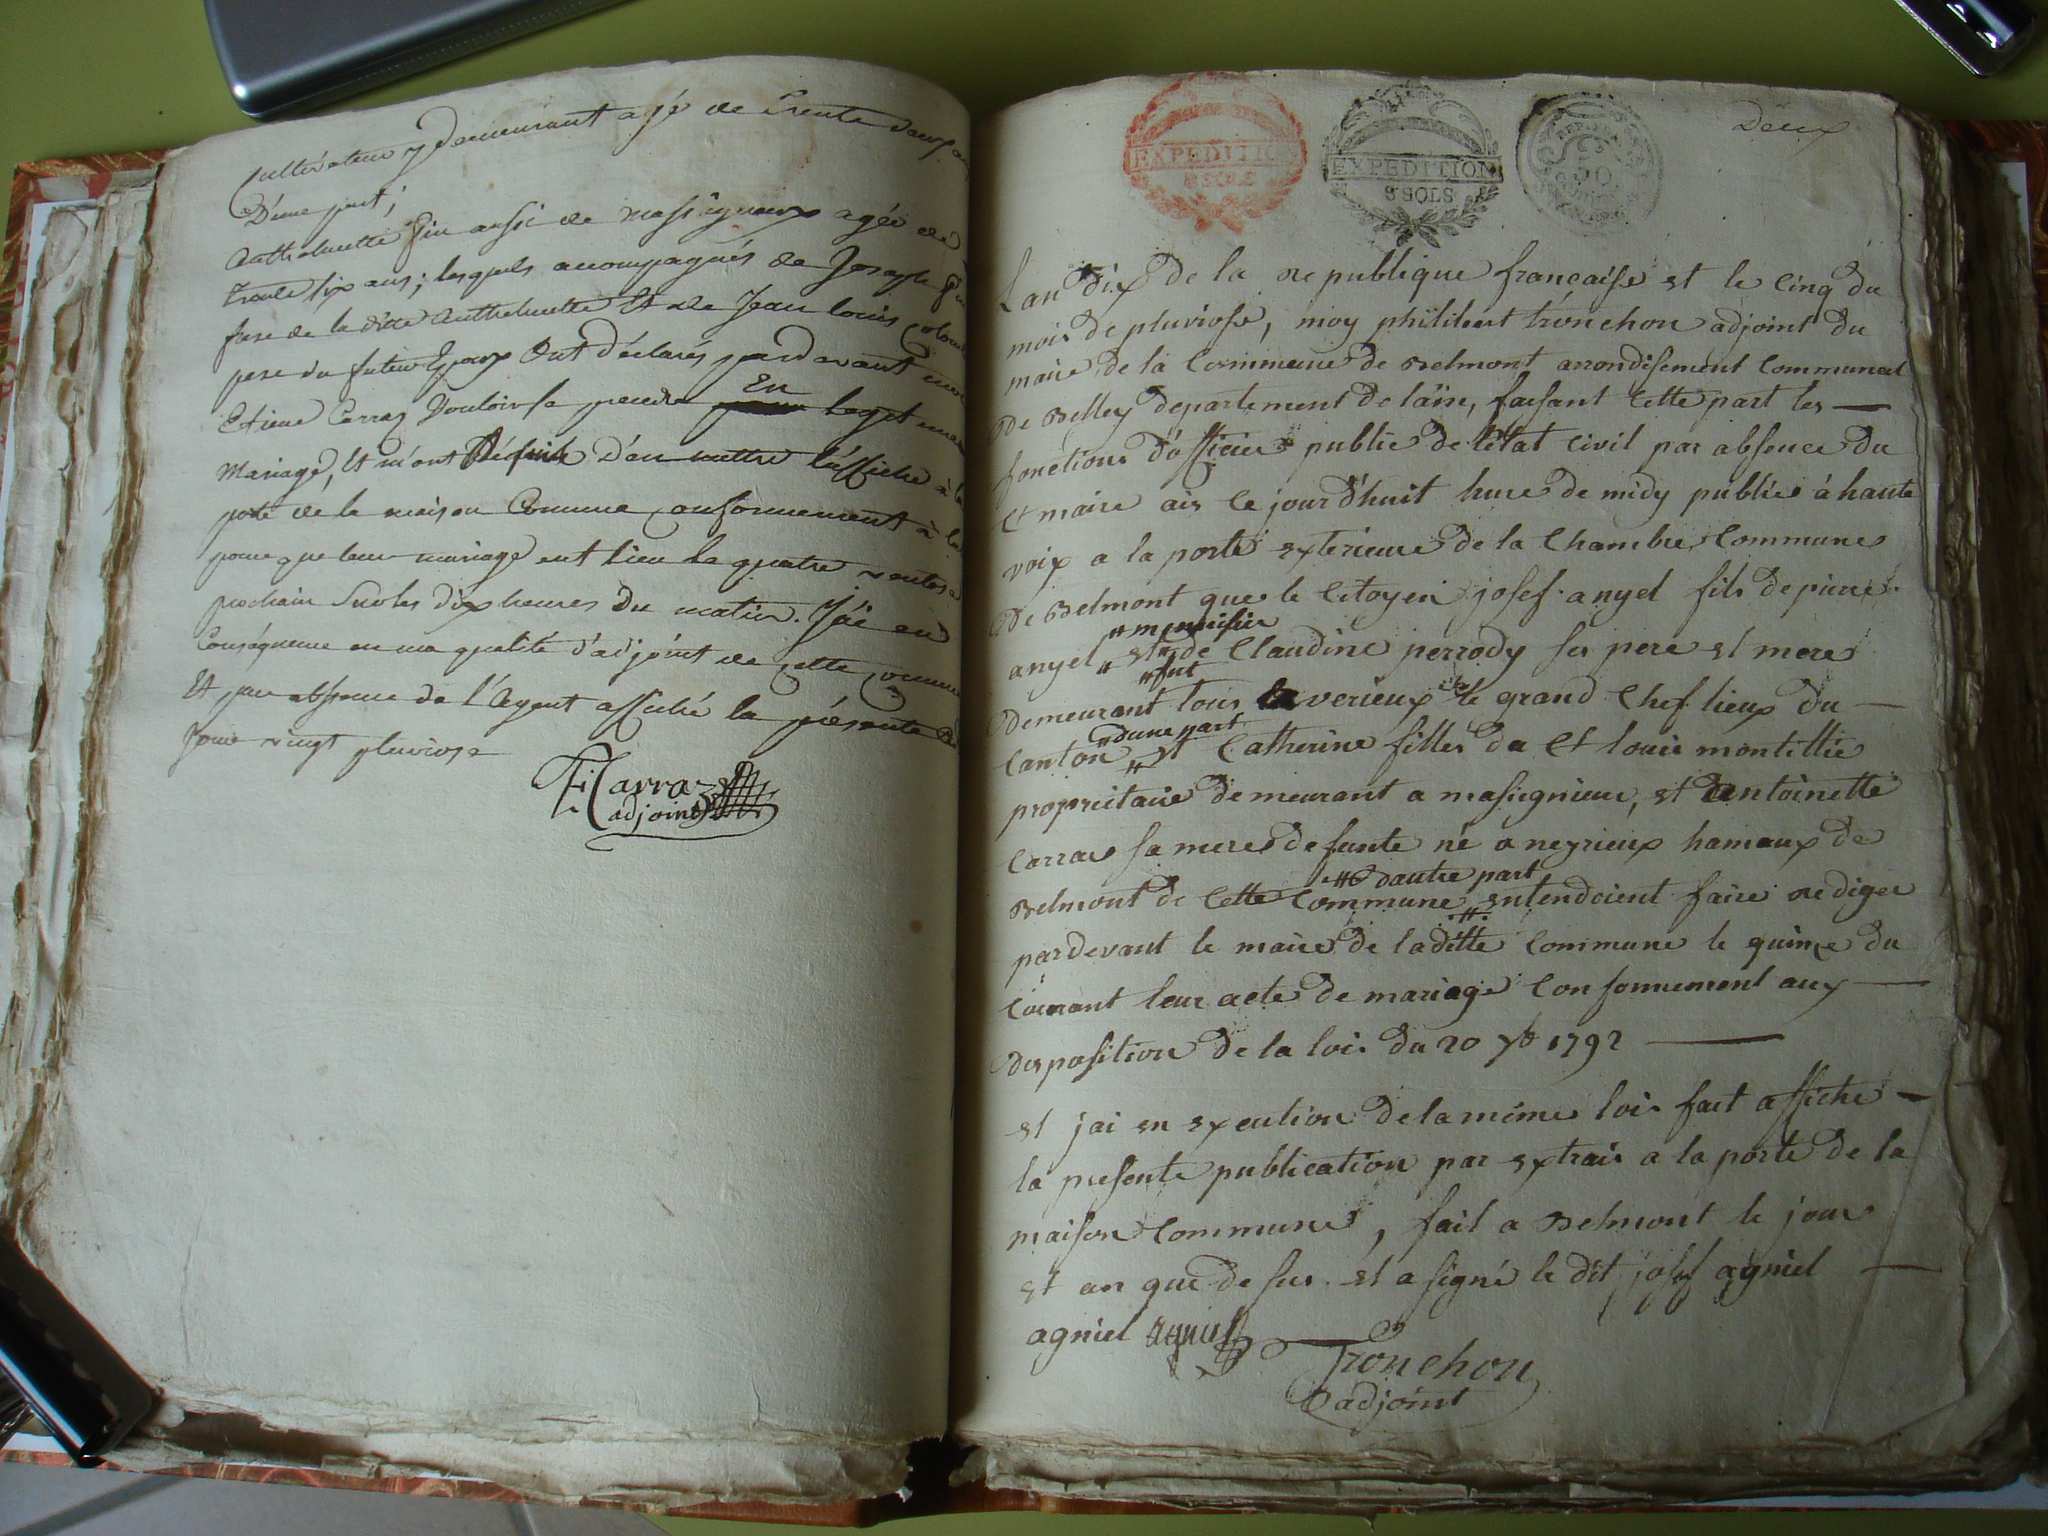 Cultivateur y demeurant agé de Trente deux an
D'une part;
Anthelmette fiu aussi de massigneux agée de
Trente six ans; lesquels accompagnés de Joseph fiu
pere de la ditte Anthelmette Et de Jean louis
pere du futeur Epoux Ont déclarés pardevant moi
Etiene Carraz Vouloir se prendre En legit
Mariagé, Et m'ont Réquis D'en mettre l'affiche à la
porte de la maison Comune conformement à la
pour que leur mariage eut lieu le quatre ventos
prochain Sur les dix heures du matin. J'ai en
Conséquence en ma qualité d'adjoint de cette commu
Et par absence de l'Agent affiché la présente
Jour vingt pluviose
Carraz
adjoint
EXPEDITION
8 SOLS
EXPEDITION
8 SOLS
Deux
Lan dix de la republique françaisse et le cinq du
mois de pluviosse, moy philibert tronchon adjoint du
maire de la Commune de Belmont arrondisement Communal
De Belley departement de l'ain, faisant cette part les —
fonctions d'officier public de l'état civil par absence du
Ct maire ais ce jourd'huit hure de midy publier à haute
voix a la porte exterieure de la Chambre Commune
De Belmont que le Citoyen josef anyel fils de pierre
" menuisier
anyel " et de Claudine perrody ses pere et mere
" fut
Demeurant tous verieux le grand Chef lieux du —
" dune part
Canton " et Catherine filles du Ct louis montillie
proprietaire demeurant a massignieu, et Antoinette
Carras sa mere defunte né a neyrieux hamaux de
" dautre part
Belmont de Cette Commune " entendoient faire rediger
pardevant le maire de laditte Commune le quinze du
Courant leur acte de mariage Conformement aux —
disposition de la loir du 20 7b 1792 —
et jai en execution de la même loir fait affiche —
la presente publication par extrais a la porte de la
maison Commune, fait a Belmont le jour
et an que de sus. et a signé le dit josef agniel —
agniel agniel
Tronchon
adjoint